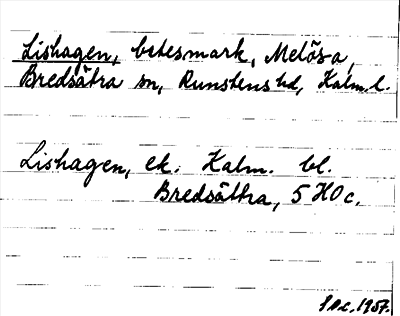 Lishagen, betesmark, Melösa,
Bredsätra sn, Runstens hd, Kalm.l.
Lishagen, ek. Kalm. bl.
Bredsättra, 5 H0c.
1957.